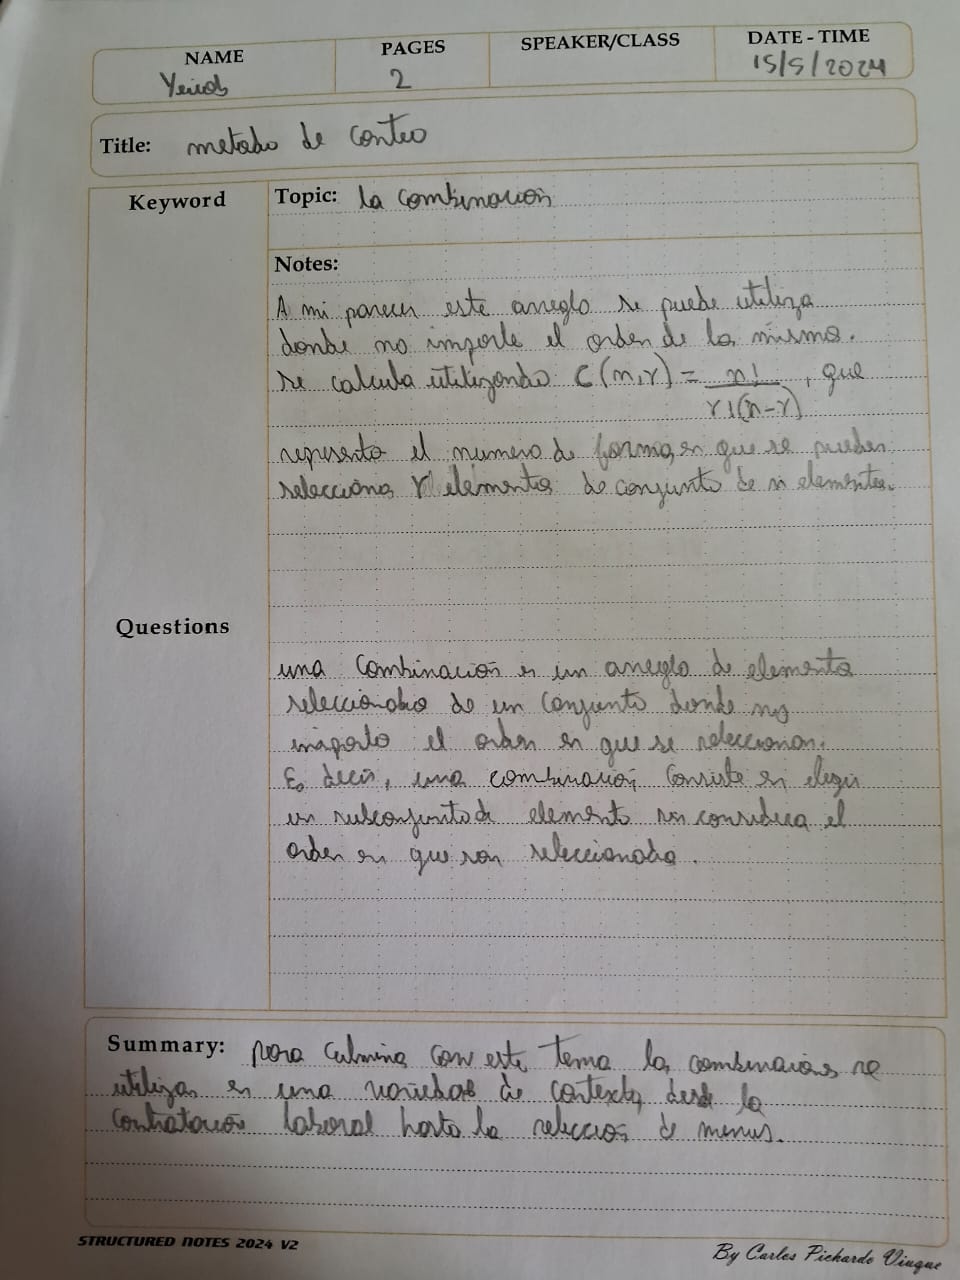 NAME PAGES SPEAKER/CLASS DATE - TIME
2 15/5/2024
Title: metodo de conteo
Keyword
Topic: la combinacion
Notes:
A mi parecer este arreglo se puede utiliza
donde no importe el orden de los mismo.
se calcula utilizando C(n,r) = n! / r!(n-r), que
representa el numero de formas en que se pueden
selecciona r elementos de conjunto de n elementos.
Questions
una combinacion es un arreglo de elemento
seleccionado de un conjunto donde no
importa el orden en que se seleccionan.
Es decir, una combinacion consiste en elegir
un subconjunto de elemento sin considera el
orden en que son seleccionado.
Summary: para culmina con este tema la combinacion se
utilizan en una variedad de contexto, desde la
contratacion laboral hasta la seleccion de menus.
STRUCTURED NOTES 2024 V2
By Carlos Pichardo Viuque